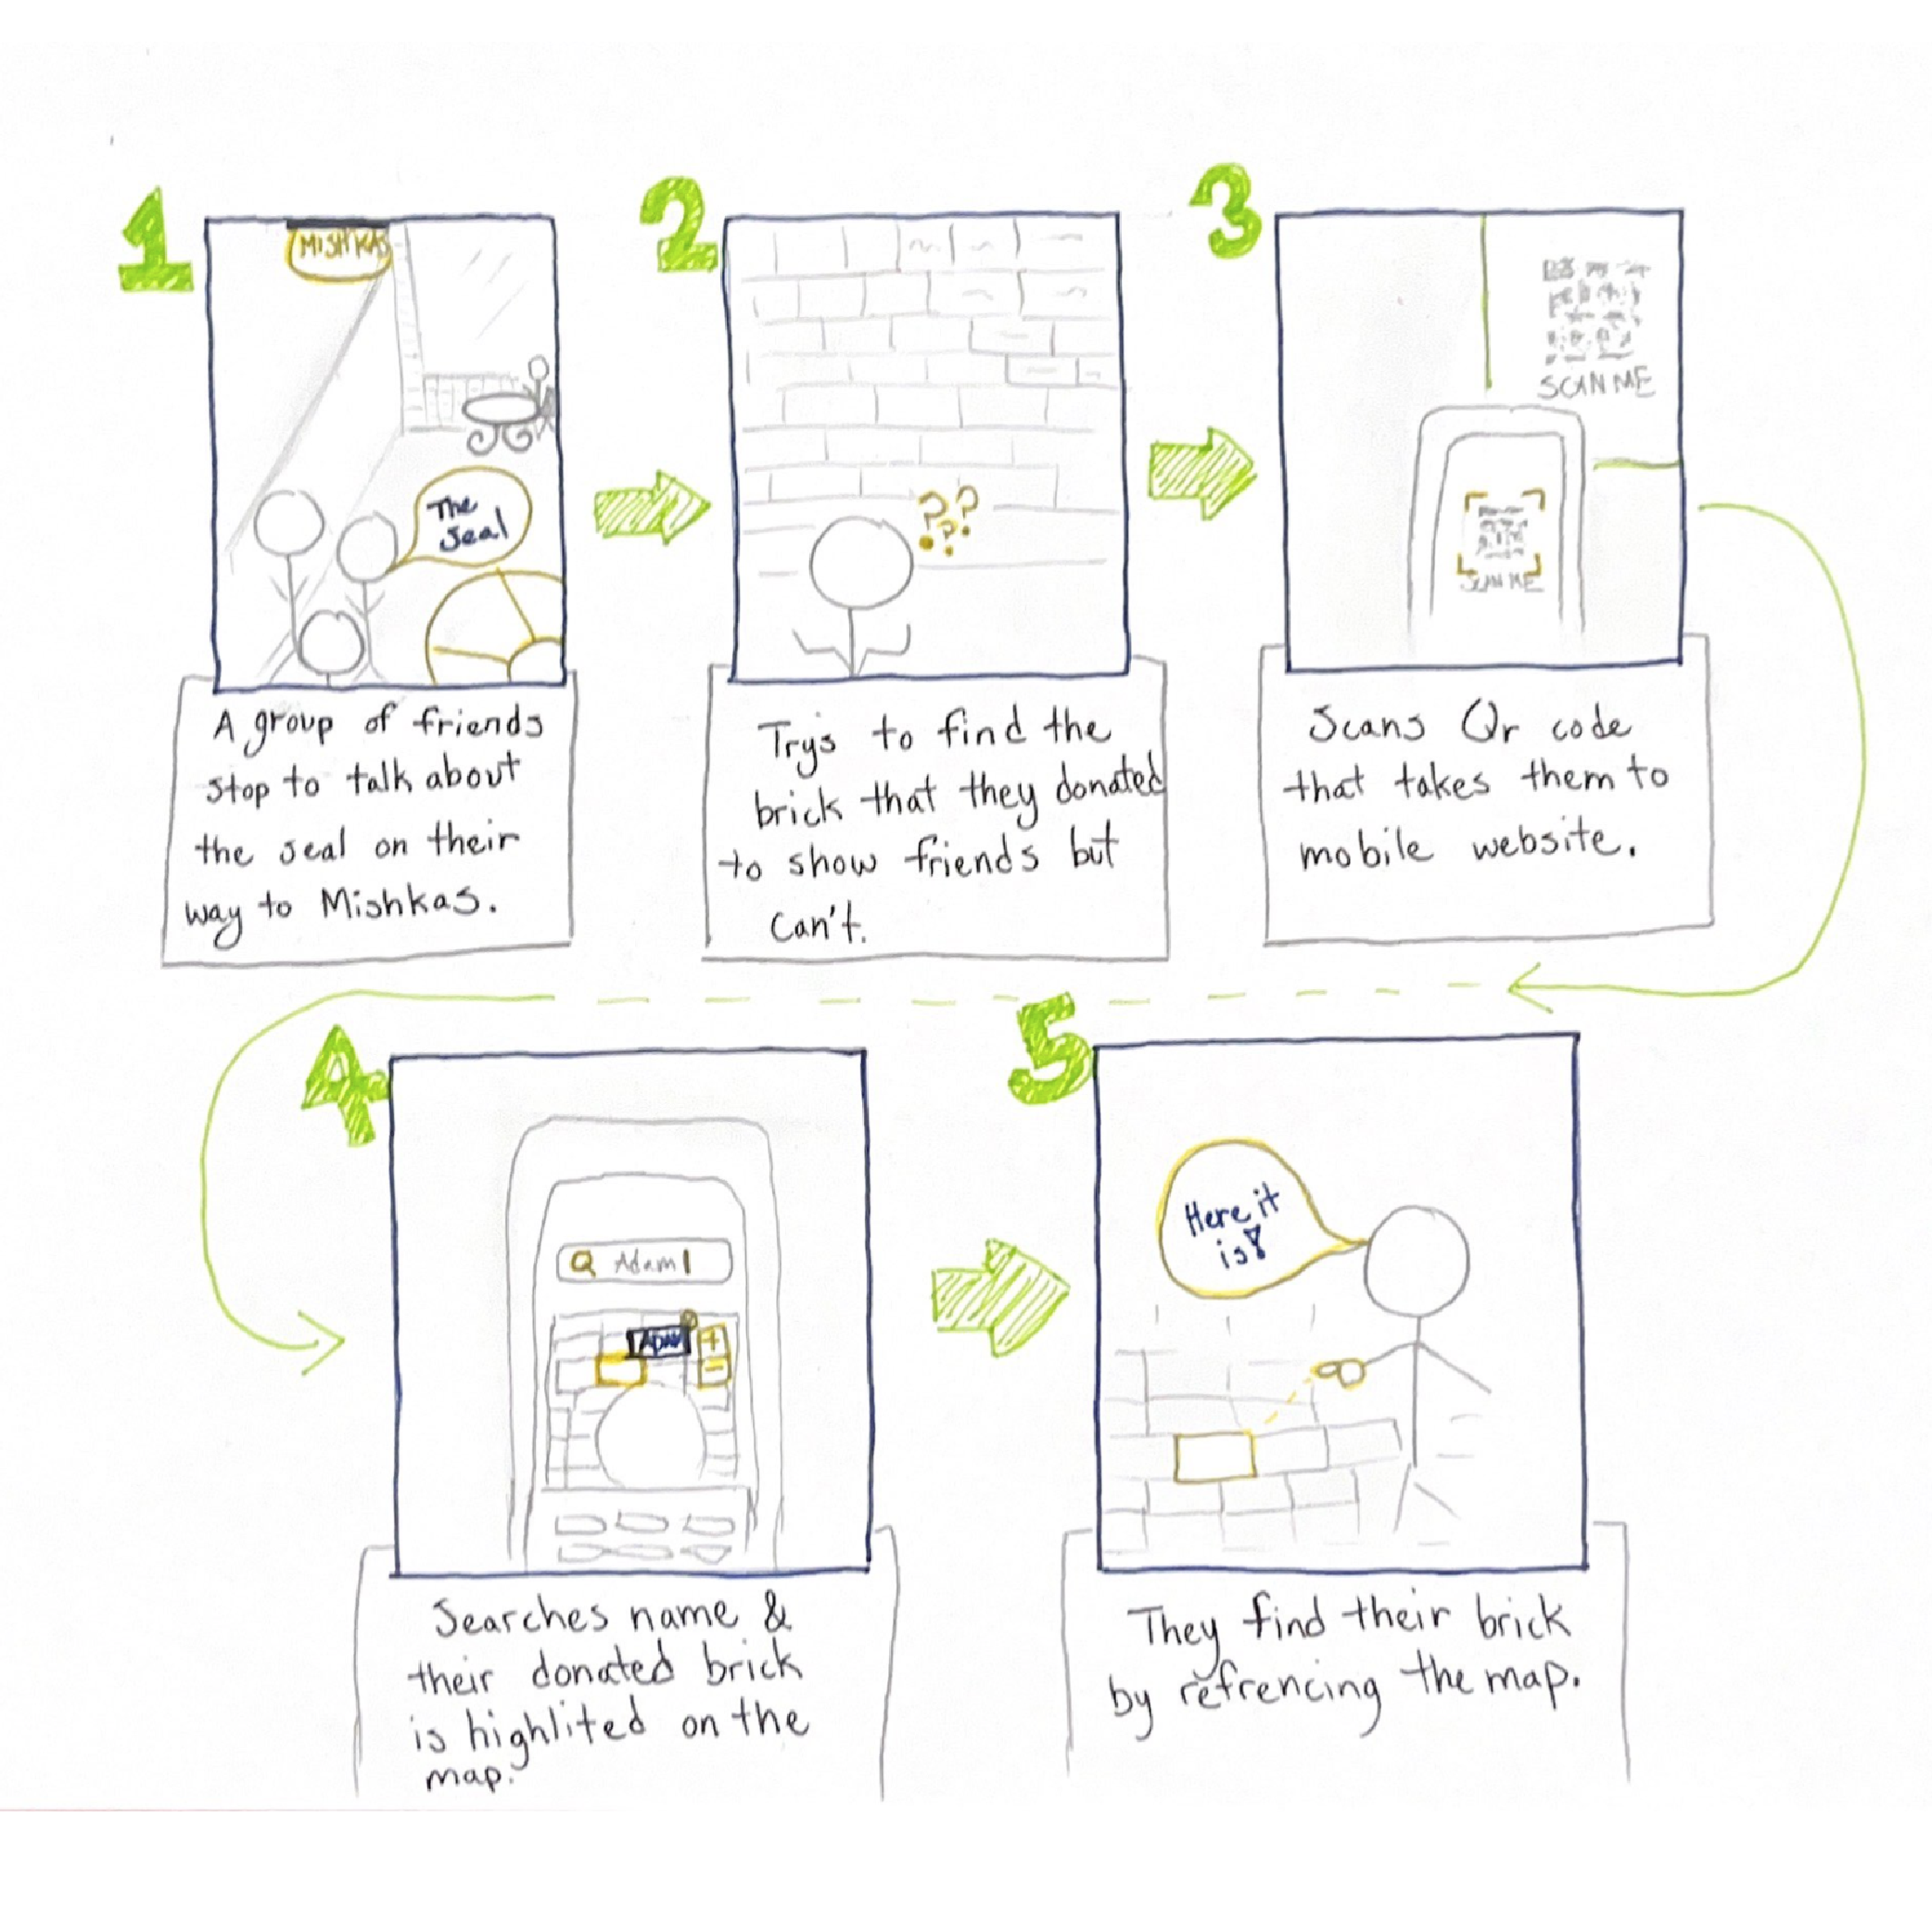 1
MISHKAS
The
Seal
A group of friends
stop to talk about
the seal on their
way to Mishkas.
2
? ? ?
Trys to find the
brick that they donated
to show friends but
can't.
3
SCAN ME
SCAN ME
Scans Qr code
that takes them to
mobile website.
4
Adam
ADAM
+
-
Searches name &
their donated brick
is highlited on the
map.
5
Here it
is!
They find their brick
by refrencing the map.